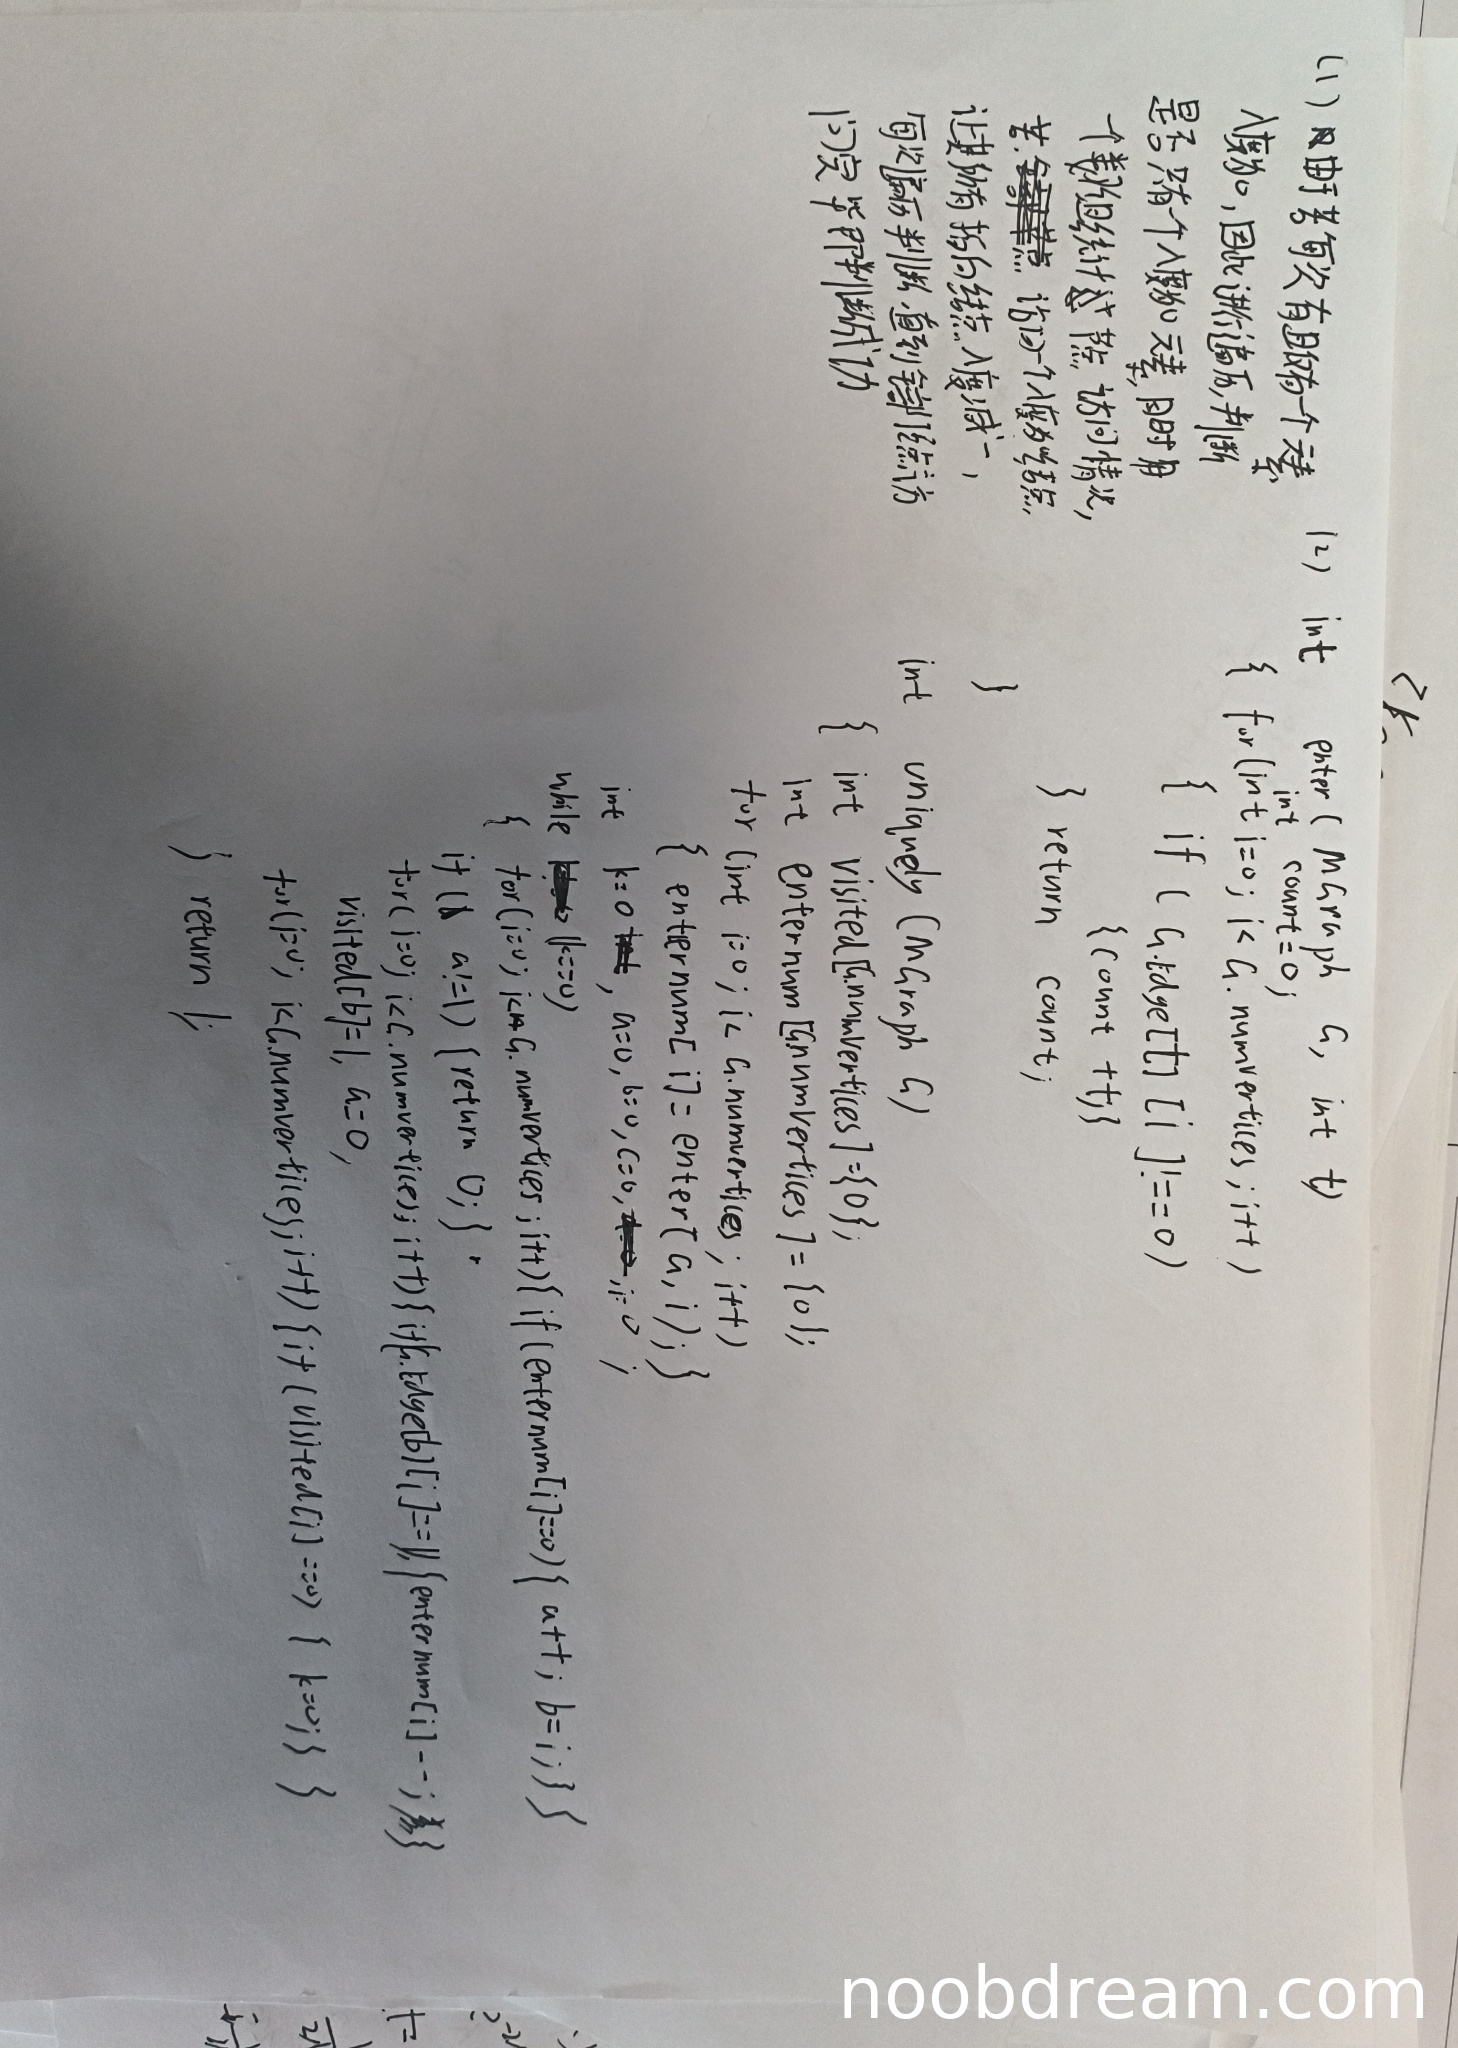 (1) 由于若每次有且仅有一个元素
入度为0,因此进行遍历,判断
是否只有一个入度为0元素,同时用
个数组统计 节点访问情况,
若 访问一个入度为0结点,
让其所有指向结点入度减一,
每次遍历判断,直到全部结点访
问完毕即判断成功
(2) int enter(MGraph G, int t)
int count=0;
{ for(int i=0; i<G.numvertices; i++)
{ if ( G.Edge[t][i]!==0)
{count ++;}
} return count;
}
int uniquely (MGraph G)
{ int visited[G.numvertices]={0};
int enternum[G.numvertices]={0};
for(int i=0; i<G.numvertices; i++)
{ enternum[i]=enter[G, i); }
int k=0, a=0, b=0, c=0, i=0;
while (k==0)
{ for(i=0; i<G.numvertices; i++){ if(enternum[i]==0){ a++; b=i;}}
if( a!=1) {return 0;}
for(i=0; i<G.numvertices; i++){if(G.Edge[b][i]==1){enternum[i]--;}}
visited[b]=1, a=0,
for(i=0; i<G.numvertices; i++){if(visited[i]==0) { k=0;} }
} return 1;
2k
noobdream.com